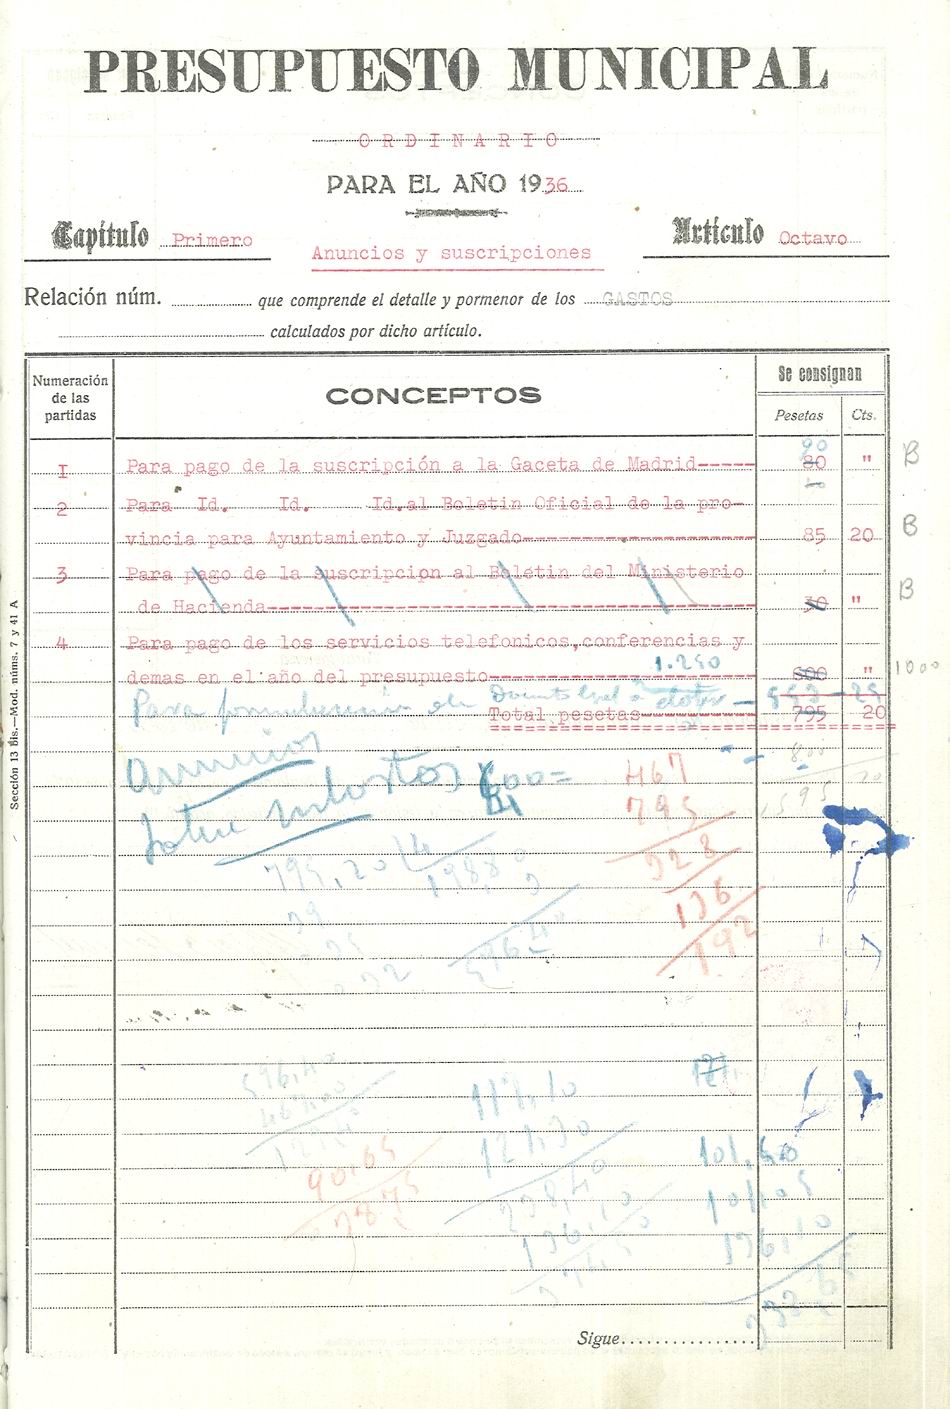 PRESUPUESTO MUNICIPAL
ORDINARIO
PARA EL AÑO 1936
Capítulo Primero
Artículo Octavo
Anuncios y suscripciones
Relación núm. que comprende el detalle y pormenor de los GASTOS
calculados por dicho artículo.
Numeración de las partidas
CONCEPTOS
Se consignan
Pesetas Cts.
90
1 Para pago de la suscripción a la Gaceta de Madrid----- 80 " B
2 Para Id. Id. Id.al Boletin Oficial de la pro-
vincia para Ayuntamiento y Juzgado----- 85 20 B
3 Para pago de la suscripcion al Boletin del Ministerio
de Hacienda----- 30 " B
4 Para pago de los servicios telefonicos,conferencias y
1.250
demas en el año del presupuesto----- 600 " 1000
Para
Total pesetas----- 795 20
anuncios
600=
467
795
328
136
192
795,20 4
198,8
39
35
32
596,40
117,10
121,30
238,40
136,10
90,65
101,50
101,05
136,10
Sigue
Sección 13 bis.—Mod. núms. 7 y 41 A